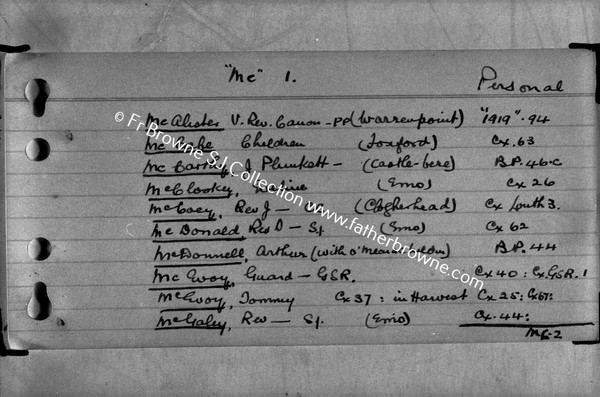 "Mc" 1.
Personal
McAlister V. Rev. Canon - PP (Warrenpoint) "1919".94
McCabe Children (Foxford) Cx.63
McCartney J Plunkett - (Castle-bere) B.P. 46.c
McCloskey, (Emo) Cx 26
McCoey, Rev J - (Clogherhead) Cx Louth 3.
McDonald Rev D - SJ (Emo) Cx 62
McDonnell, Arthur (with O'Meara B.P. 44
McEvoy, Guard - GSR. Cx 40 : Cx GSR. 1
McEvoy, Tommy Cx 37 : in Harvest Cx 25: Cx 67:
McGaley, Rev - SJ. (Emo) Cx. 44:
Mc-2
© Fr Browne S.J. Collection www.fatherbrowne.com